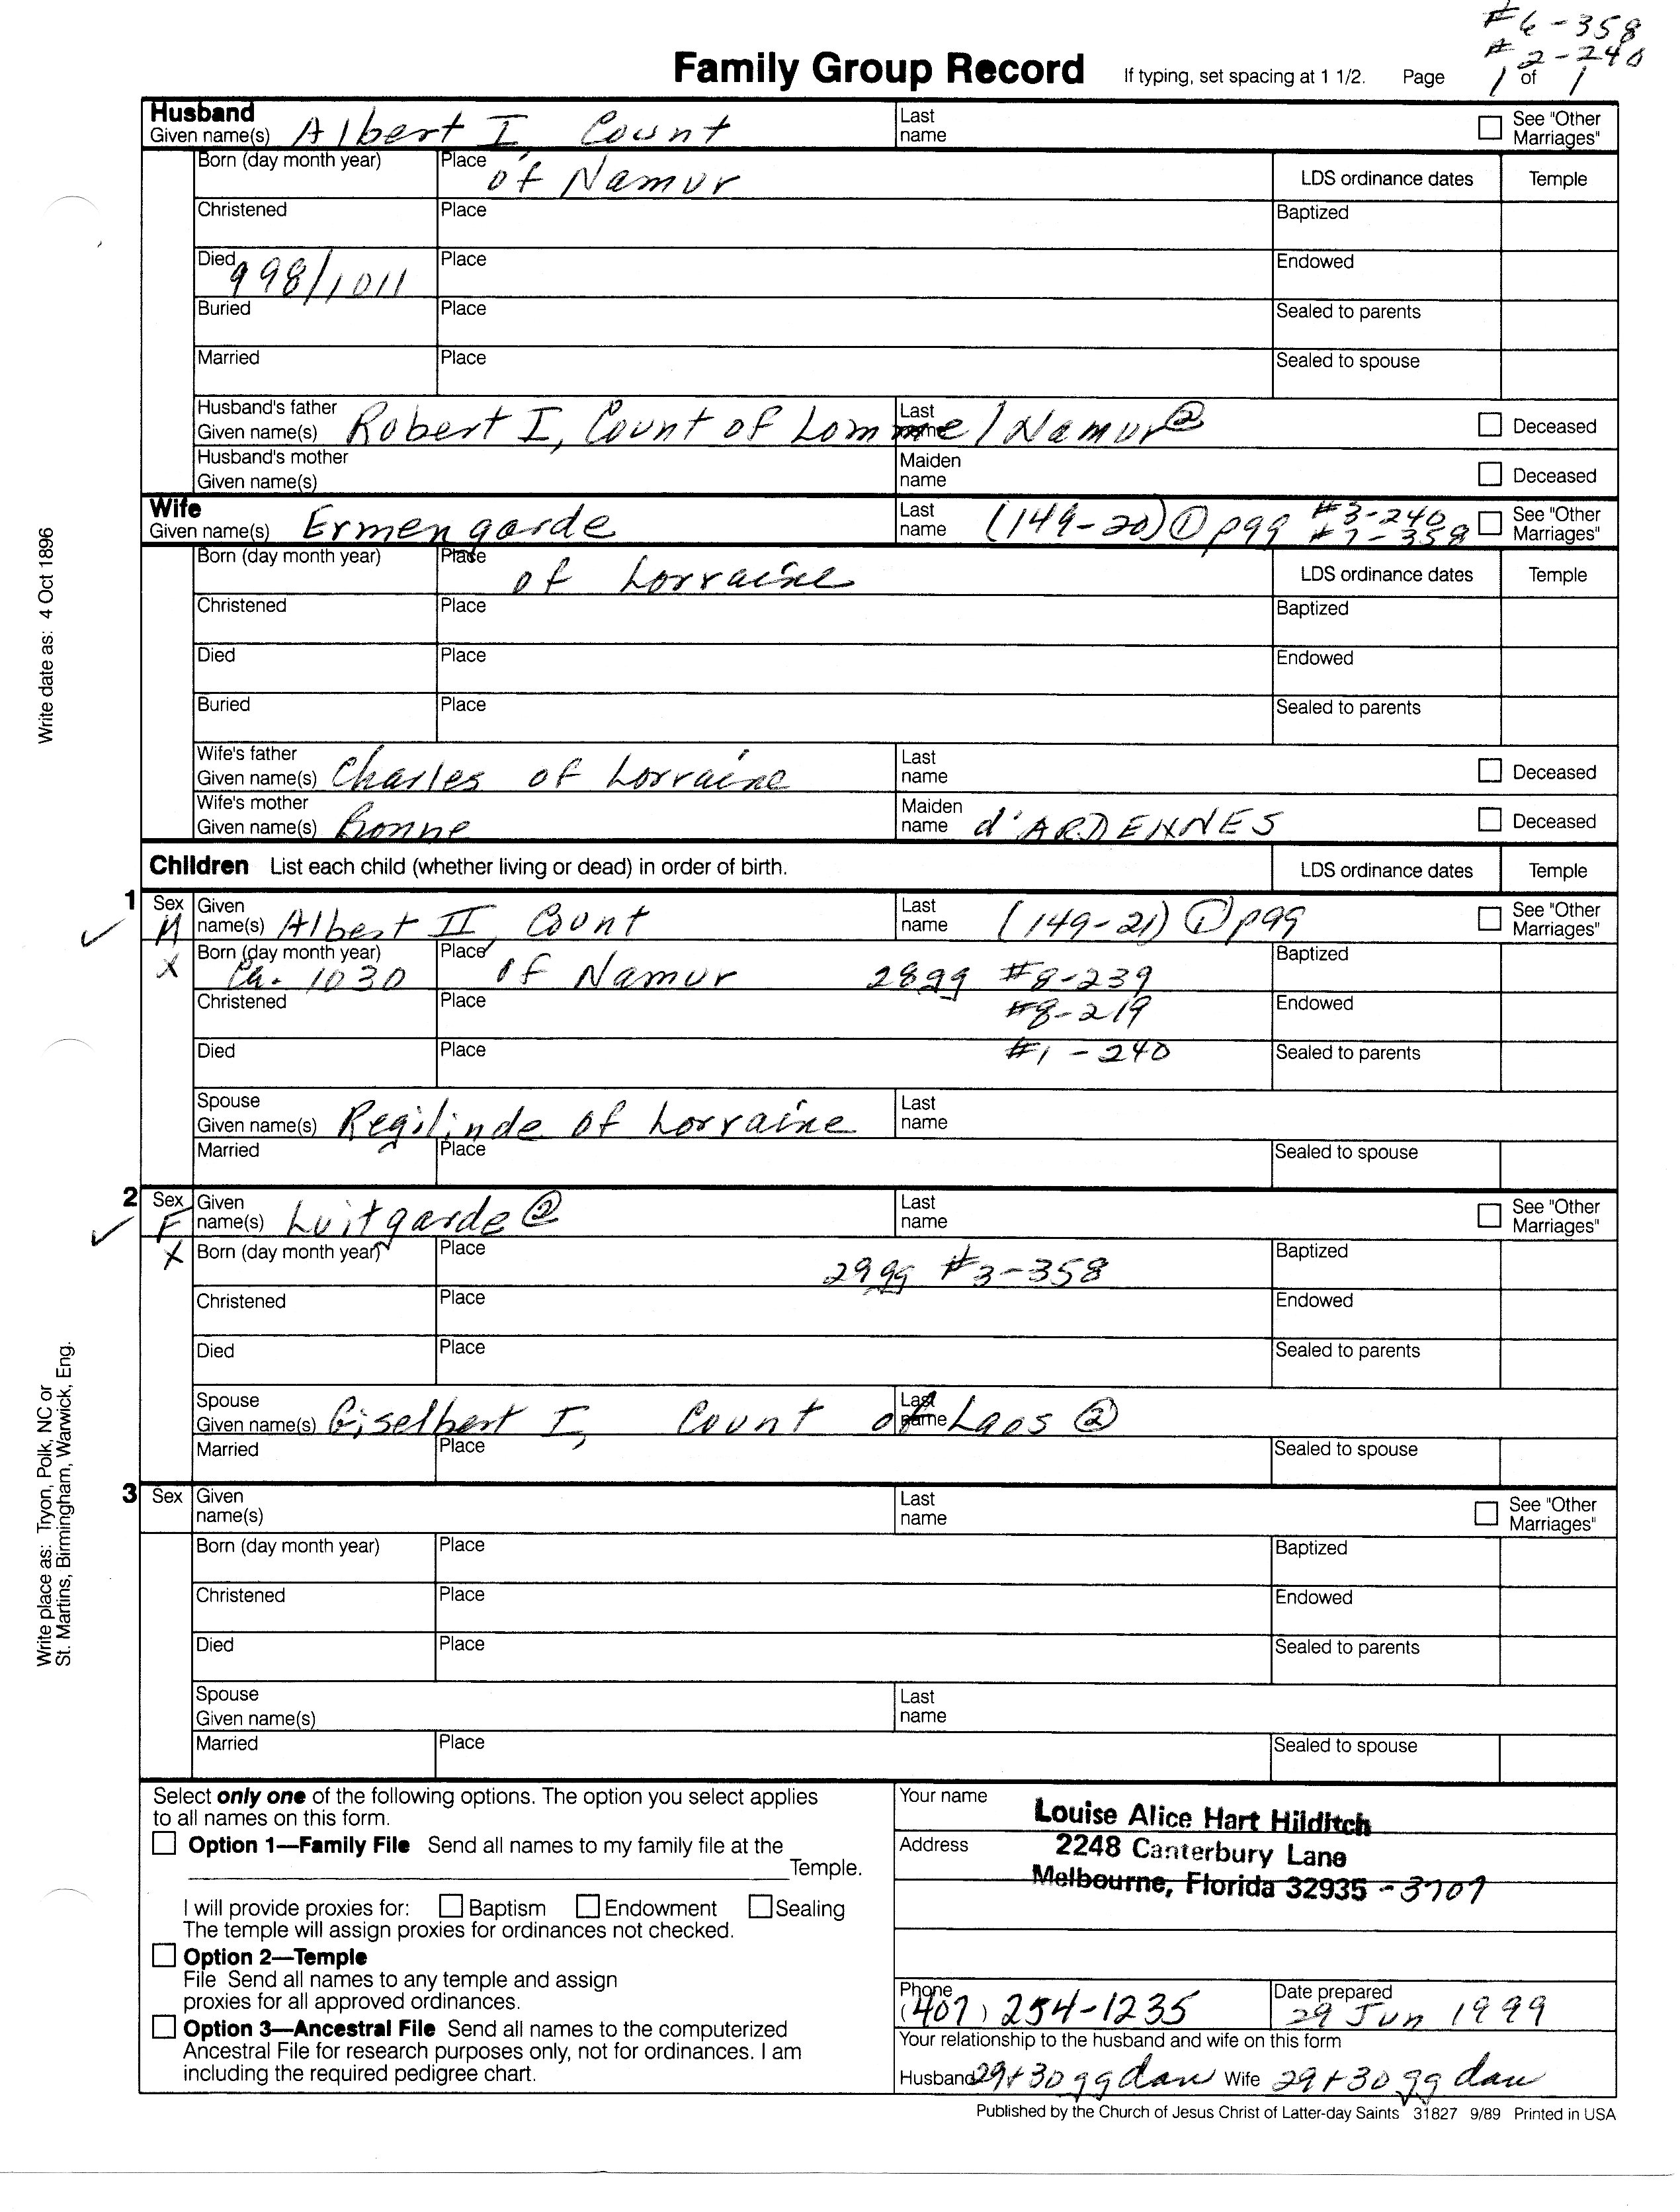 #6-358
#2-240
Family Group Record If typing, set spacing at 1 1/2. Page 1 of 1
Husband
Given name(s) Albert I, Count
Last name
See "Other Marriages"
Born (day month year)
Place of Namur
LDS ordinance dates
Temple
Christened
Place
Baptized
Died 998/1011
Place
Endowed
Buried
Place
Sealed to parents
Married
Place
Sealed to spouse
Husband's father
Given name(s) Robert I, Count of Lomme/Namur②
Last name
Deceased
Husband's mother
Given name(s)
Maiden name
Deceased
Wife
Given name(s) Ermengarde
Last name (149-20)① p99 #3-240
#7-358
See "Other Marriages"
Born (day month year)
Place of Lorraine
LDS ordinance dates
Temple
Christened
Place
Baptized
Died
Place
Endowed
Buried
Place
Sealed to parents
Wife's father
Given name(s) Charles of Lorraine
Last name
Deceased
Wife's mother
Given name(s) Bonne
Maiden name d'ARDENNES
Deceased
Children List each child (whether living or dead) in order of birth.
LDS ordinance dates
Temple
1
Sex M
X
Given name(s) Albert II, Count
Last name (149-21)① p99
See "Other Marriages"
Born (day month year) Ca. 1030
Place of Namur 28gg #8-239
Baptized
Christened
Place #8-219
Endowed
Died
Place #1-240
Sealed to parents
Spouse
Given name(s) Regilinde of Lorraine
Last name
Married
Place
Sealed to spouse
2
Sex F
X
Given name(s) Luitgarde②
Last name
See "Other Marriages"
Born (day month year)
Place 29gg #3-358
Baptized
Christened
Place
Endowed
Died
Place
Sealed to parents
Spouse
Given name(s) Giselbert I, Count of Laos②
Last name
Married
Place
Sealed to spouse
3
Sex
Given name(s)
Last name
See "Other Marriages"
Born (day month year)
Place
Baptized
Christened
Place
Endowed
Died
Place
Sealed to parents
Spouse
Given name(s)
Last name
Married
Place
Sealed to spouse
Select only one of the following options. The option you select applies
to all names on this form.
Option 1—Family File Send all names to my family file at the
Temple.
I will provide proxies for: Baptism Endowment Sealing
The temple will assign proxies for ordinances not checked.
Option 2—Temple
File Send all names to any temple and assign
proxies for all approved ordinances.
Option 3—Ancestral File Send all names to the computerized
Ancestral File for research purposes only, not for ordinances. I am
including the required pedigree chart.
Your name Louise Alice Hart Hilditch
Address 2248 Canterbury Lane
Melbourne, Florida 32935 -3707
Phone (407) 254-1235
Date prepared 29 Jun 1999
Your relationship to the husband and wife on this form
Husband 29+30 gg dau Wife 29+30 gg dau
Published by the Church of Jesus Christ of Latter-day Saints 31827 9/89 Printed in USA
Write date as: 4 Oct 1896
Write place as: Tryon, Polk, NC or
St. Martins, Birmingham, Warwick, Eng.